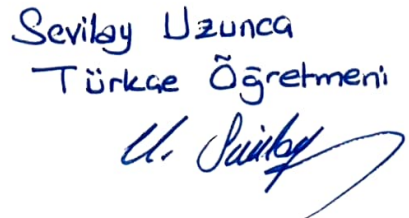 Sevilay Uzunca
Türkçe Öğretmeni
U. Sevilay